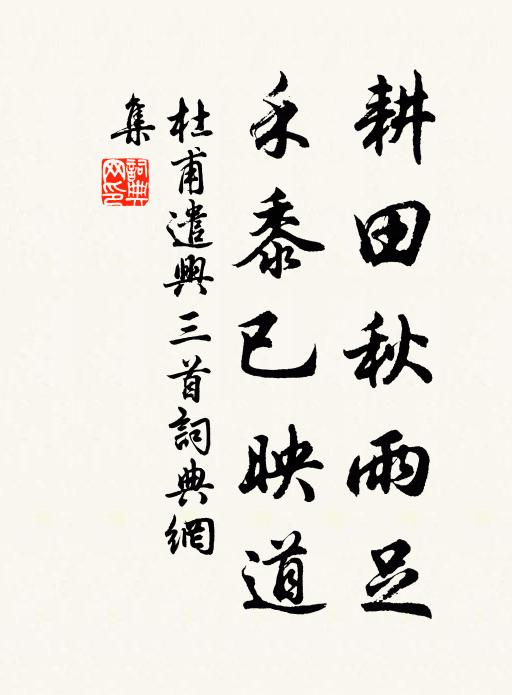 耕田秋雨足
禾黍已映道
杜甫遣興三首詞典網
集
詞典
网印